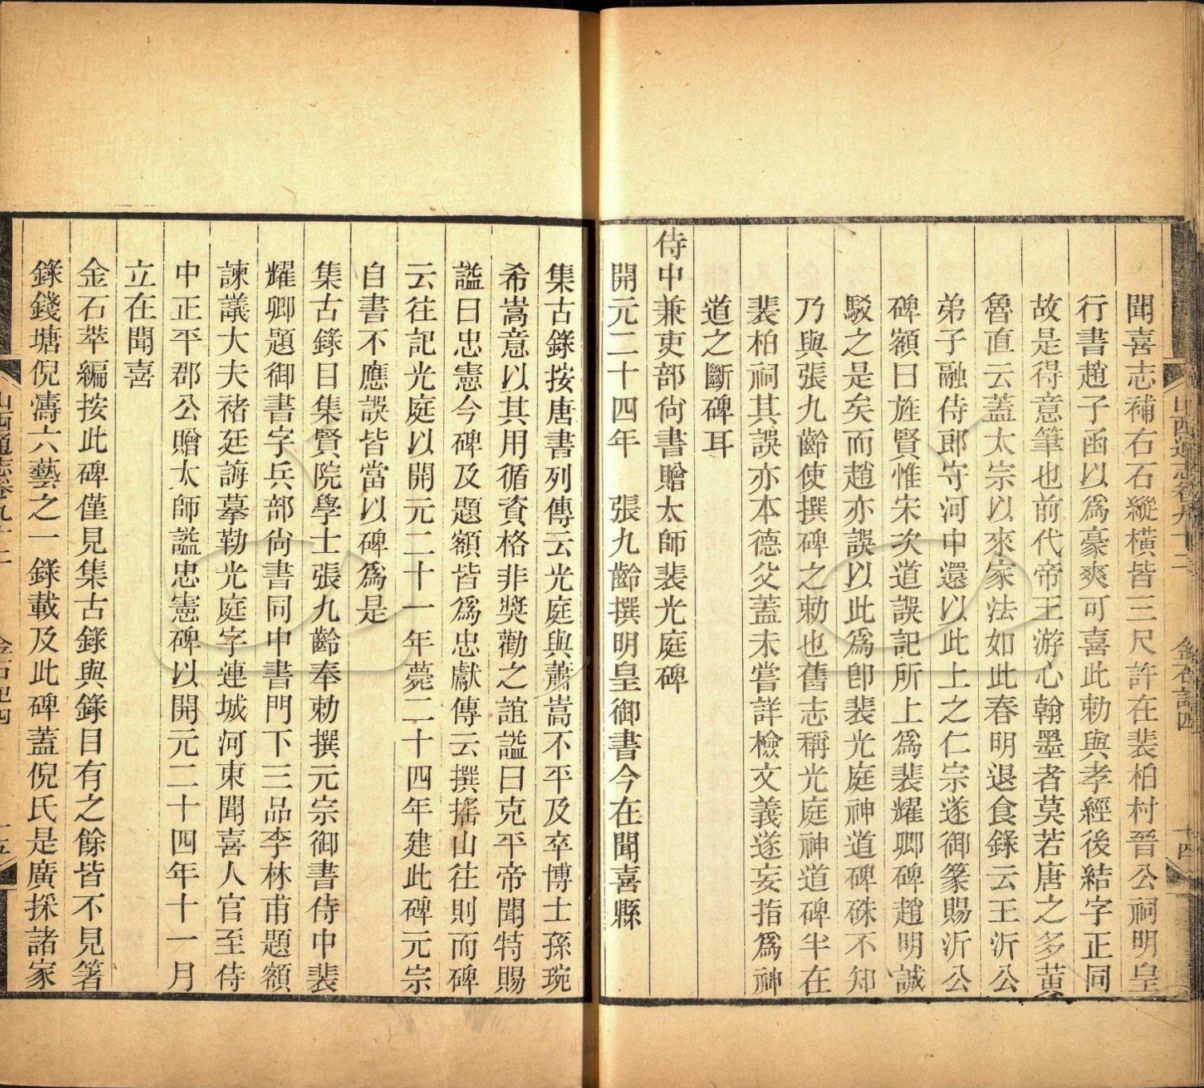 聞喜志補石石縱橫皆三尺許在裴柏村晉公祠明皇
行書趙子函以爲豪爽可喜此勅與孝經後結字正同
故是得意筆也前代帝王游心翰墨者莫若唐之多黄
魯直云蓋太宗以來家法如此春明退食錄云王沂公
弟子融侍郎守河中還以此上之仁宗遂御篆賜沂公
碑額曰旌賢惟宋次道誤記所上爲裴耀卿碑趙明誠
駮之是矣而趙亦誤以此爲卽裴光庭神道碑硃不知
乃與張九齡使撰碑之勅也舊志稱光庭神道碑半在
裴柏祠其誤亦本德父蓋未嘗詳檢文義遂妄指爲神
道之斷碑耳
侍中兼吏部尙書贈太師裴光庭碑
開元二十四年 張九齡撰明皇御書今在聞喜縣
集古錄按唐書列傳云光庭與蕭嵩不平及卒博士孫琬
希嵩意以其用循資格非奬勸之誼謚曰克平帝聞特賜
謚曰忠憲今碑及題額皆爲忠獻傳云撰搖山往則而碑
云往記光庭以開元二十一年薨二十四年建此碑元宗
自書不應誤皆當以碑爲是
集古錄目集賢院學士張九齡奉勅撰元宗御書侍中裴
耀卿題御書字兵部尙書同中書門下三品李林甫題額
諫議大夫禇廷誨摹勒光庭字連城河東聞喜人官至侍
中正平郡公贈太師謚忠憲碑以開元二十四年十一月
立在聞喜
金石萃編按此碑僅見集古錄與錄目有之餘皆不見箸
錄錢塘倪濤六藝之一錄載及此碑蓋倪氏是廣採諸家